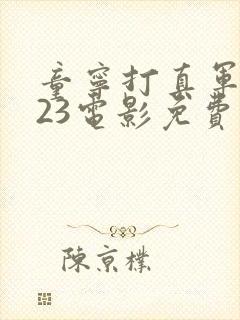 童寧打真軍
23電影免費
陳京樸